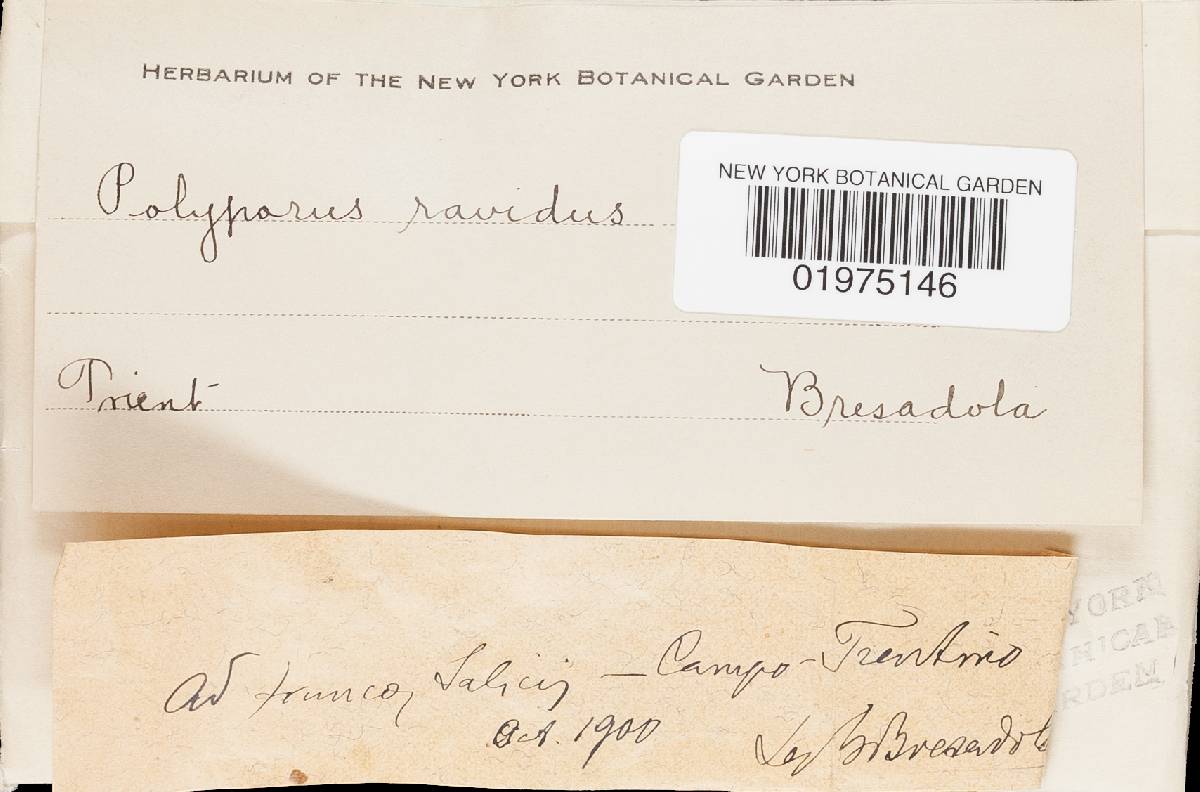 HERBARIUM OF THE NEW YORK BOTANICAL GARDEN
Polyporus ravidus
NEW YORK BOTANICAL GARDEN
01975146
Trient
Bresadola
Ad truncos Salicis – Campo - Trentino
Oct. 1900
Leg Bresadola
YORK
NICAL
RDEN